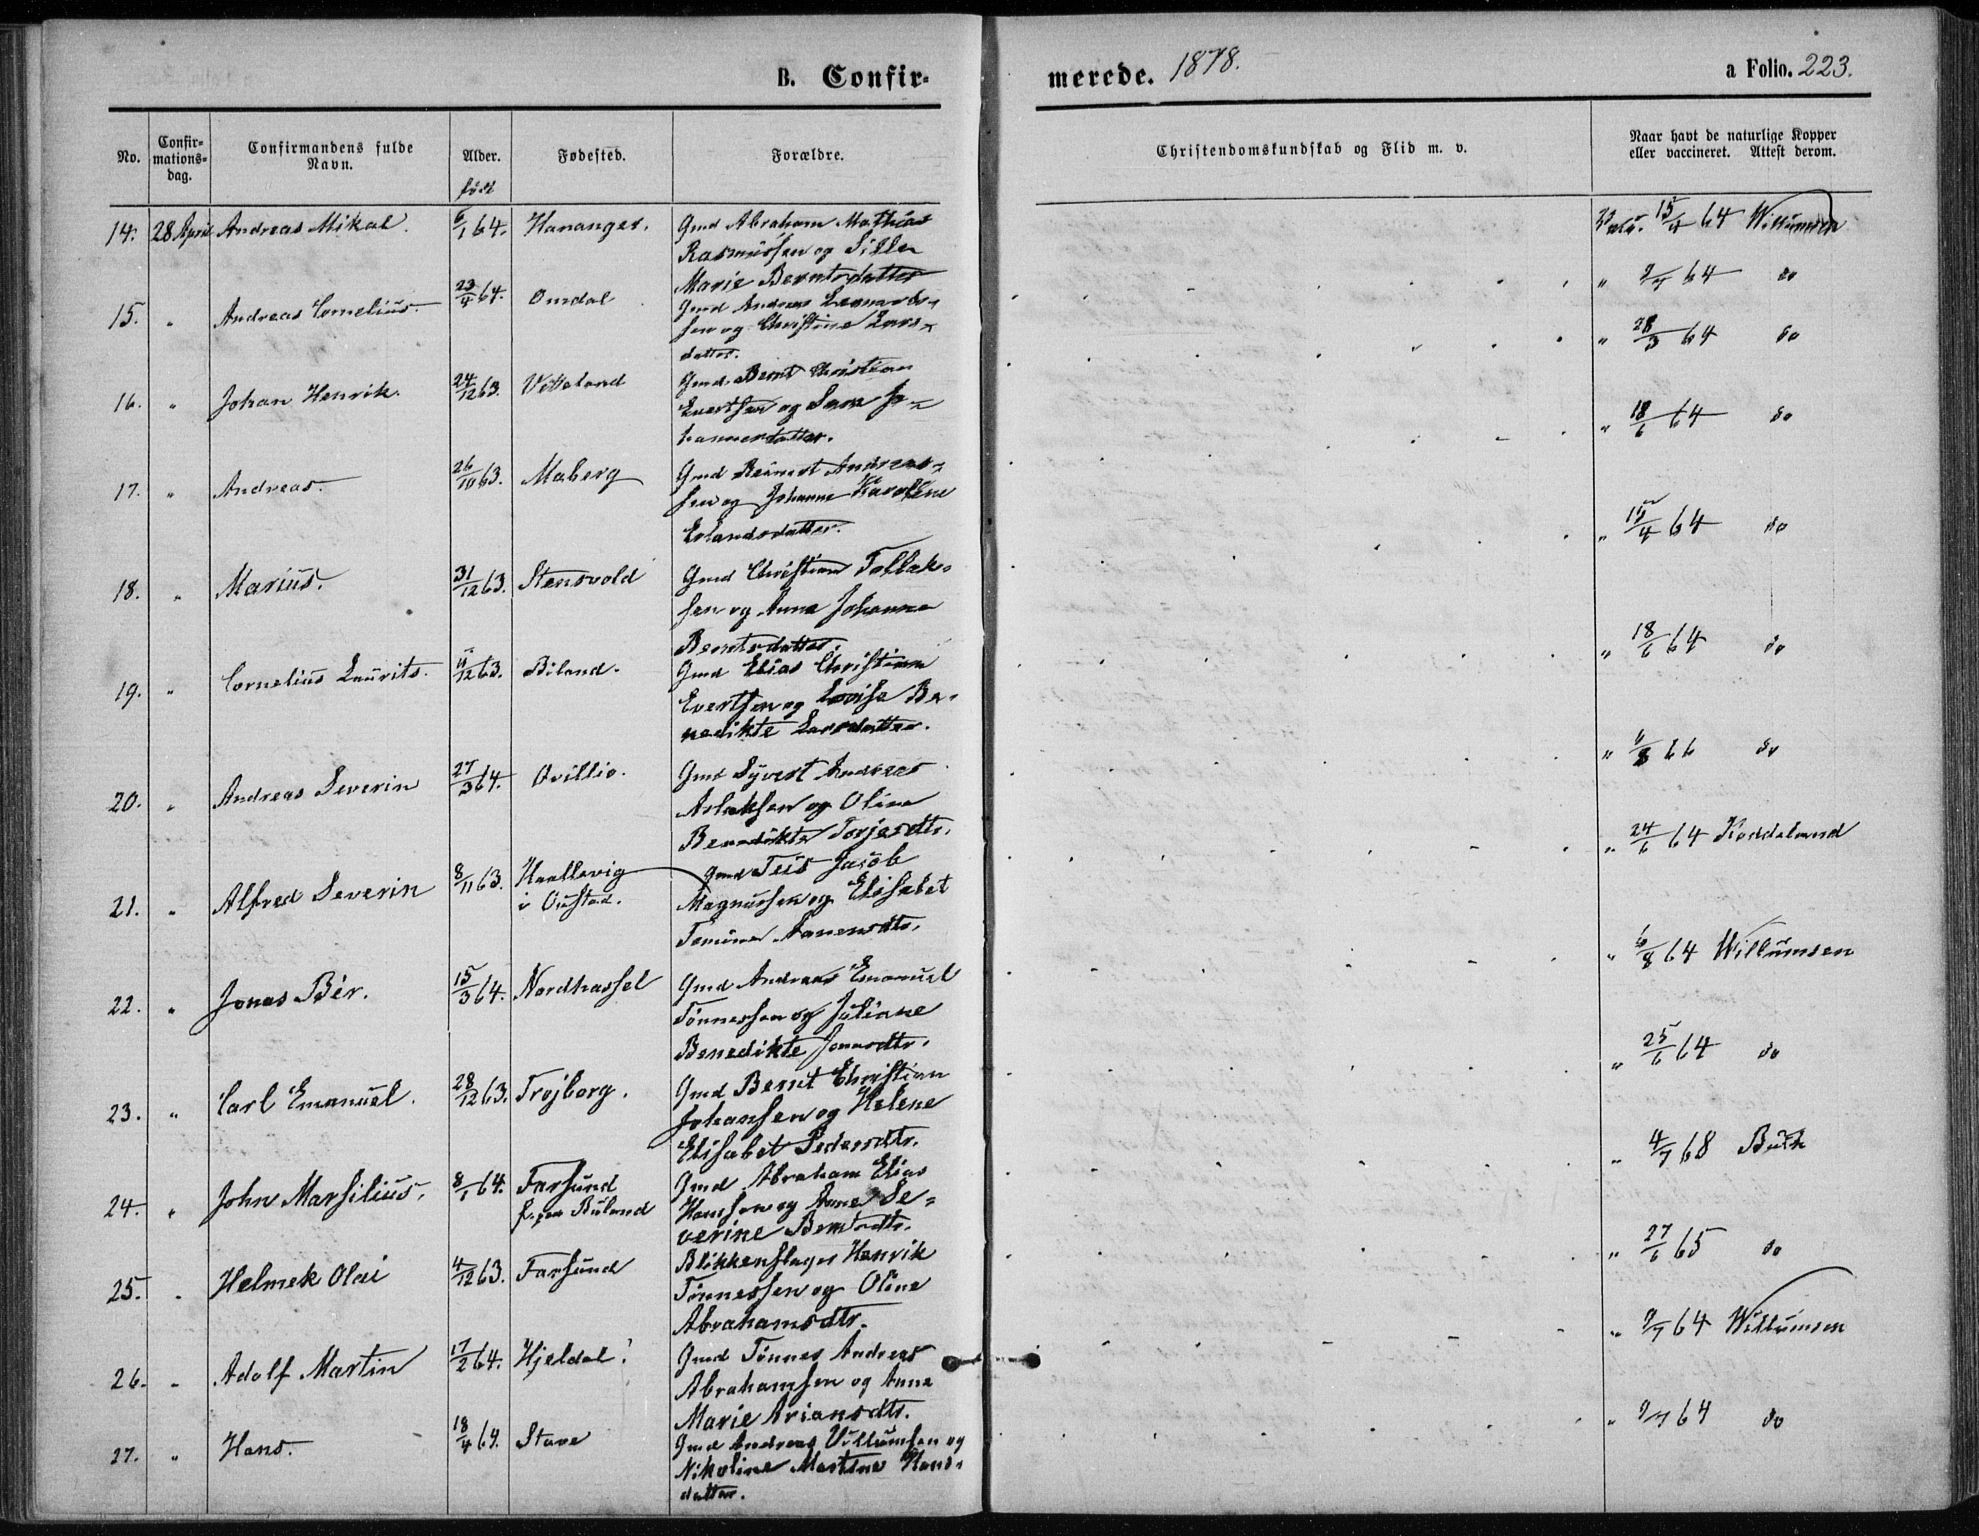 B. Confir-
merede. 1878.
a Folio. 223.
No.
Confir-
mations-
dag.
Confirmandens fulde
Navn.
Alder.
født
Fødested.
Forældre.
Christendomskundskab og Flid m. v.
Naar havt de naturlige Kopper
eller vaccineret. Attest derom.
14. 28 April Andreas Mikal. 6/1 64. Hananger. Gmd Abraham Mathias
Rasmussen og Sille
Marie Berntsdatter
15/4 64 Willumsen
15. " Andreas Cornelius. 23/4 64. Omdal Gmd Andreas Leonards-
sen og Christine Lars-
datter.
" 9/7 64 do
16. " Johan Henrik. 24/12 63. Gmd. Bernt Christian
Evertsen og Sara Jo-
hannesdatter.
" 28/3 64 do
17. " Andreas. 26/10 63. Maberg Gmd Reinert Andreas-
sen og Johanne Karoline
Erlandsdatter.
" 18/6 64 do
18. " Marius. 31/12 63. Stensvold Gmd Christian Tollak-
sen og Anna Johanne
Berntsdatter.
" 15/4 64 do
19. " Cornelius Laurits. 11/12 63. Biland. Gmd Elias Christian
Evertsen og Lovise Be-
nedikte Larsdatter.
" 18/6 64 do
20. " Andreas Severin 27/3 64. Ovillio. Gmd Syvert Andreas
Aslaksen og Oline
Benedikte Torjesdtr.
" 66 do
21. " Alfred Severin 8/11 63. Haallevig
i Oustad.
Gmd Teis Jacob
Magnussen og Elisabet
Tomine Aanensdtr.
" 24/6 64 Kaddeland
22. " Jonas Bér. 15/3 64. Nordhassel Gmd Andreas Emanuel
Tønnessen og Juliane
Benedikte Jonasdtr.
" 6/8 64 Willumsen
23. " Carl Emanuel. 28/12 63. Trojborg. Gmd Bernt Christian
Johansen og Helene
Elisabet Pedersdtr.
" 25/6 64 do
24. " John Marsilius. 8/1 64. Farsund
f. paa Buland
Gmd Abraham Elias
Hansen og Anne Se-
verine Berntsdtr.
" 4/7 68 Buch
25. " Helmek Olai 4/12 63. Farsund Blikkenslager Henrik
Tønnessen og Oline
Abrahamsdtr.
" 27/6 65 do
26. " Adolf Martin 17/2 64. Hjeldal. Gmd Tønnes Andreas
Abrahamsen og Anne
Marie Ariansdtr.
" 9/7 64 Willumsen
27. " Hans. 18/4 64. Stave Gmd Andreas Villumsen og
Nikoline Martine Hans-
datter.
" 9/7 64 do